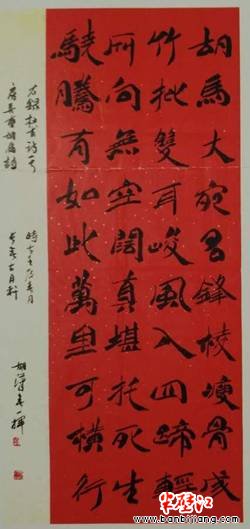 胡馬大宛名鋒棱瘦骨成
竹批雙耳峻風入四蹄輕
所向無空闊真堪托死生
驍騰有如此萬里可橫行
右錄杜甫詩一首
房兵曹胡馬詩
www.banbijiang.com